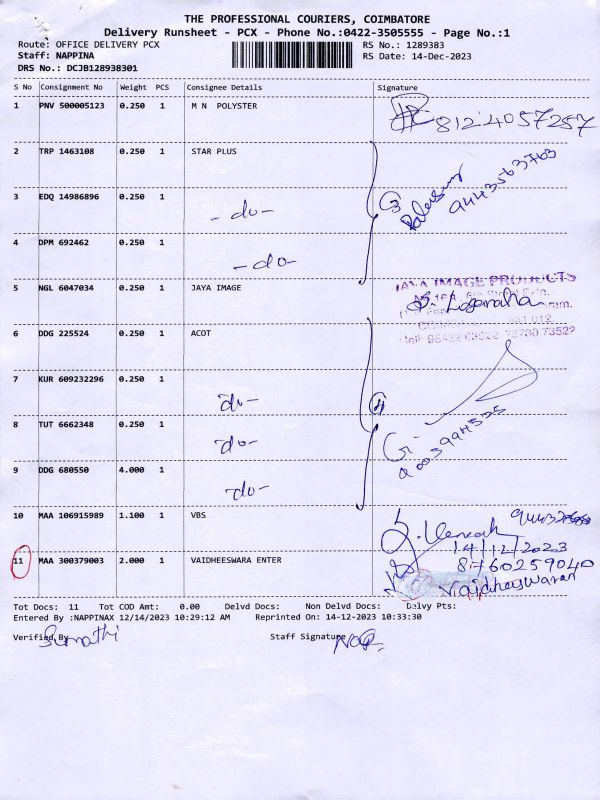 THE PROFESSIONAL COURIERS, COIMBATORE
Delivery Runsheet - PCX - Phone No.:0422-3505555 - Page No.:1
Route: OFFICE DELIVERY PCX
RS No.: 1289383
Staff: NAPPINA
RS Date: 14-Dec-2023
DRS No.: DCJB128938301
S No Consignment No Weight PCS Consignee Details Signature
1 PNV 500005123 0.250 1 M N POLYSTER
8124057257
2 TRP 1463108 0.250 1 STAR PLUS
9443563763
3 EDQ 14986896 0.250 1 - do -
4 DPM 692462 0.250 1 - do -
5 NGL 6047034 0.250 1 JAYA IMAGE
JAYA IMAGE PRODUCTS
6 DDG 225524 0.250 1 ACOT
7 KUR 609232296 0.250 1 do -
8 TUT 6662348 0.250 1 do -
9 DDG 680550 4.000 1 do -
10 MAA 106915989 1.100 1 VBS
14/12/2023
11 MAA 300379003 2.000 1 VAIDHEESWARA ENTER
8760259040
Vaidheeswaran
Tot Docs: 11 Tot COD Amt: 0.00 Delvd Docs: Non Delvd Docs: Delvy Pts:
Entered By :NAPPINAX 12/14/2023 10:29:12 AM Reprinted On: 14-12-2023 10:33:30
Verified By Sumathi
Staff Signature